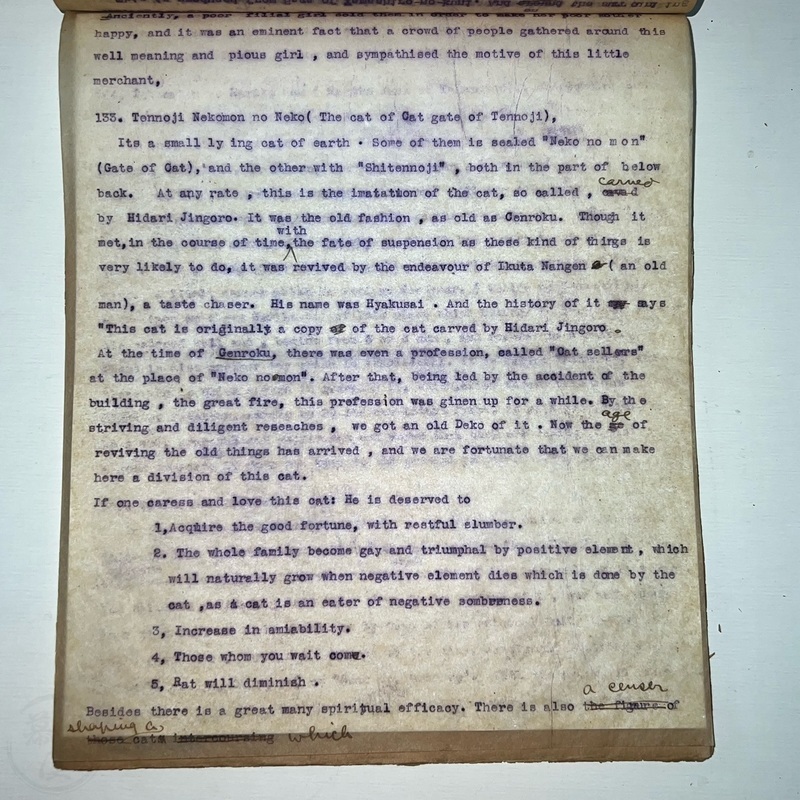 Anciently, a poor filial girl sold them in order to make her poor mother
happy, and it was an eminent fact that a crowd of people gathered around this
well meaning and pious girl , and sympathised the motive of this little
merchant,
133. Tennoji Nekomon no Neko( The cat of Cat gate of Tennoji),
Its a small ly ing cat of earth . Some of them is sealed "Neko no mon"
(Gate of Cat), and the other with "Shitennoji" , both in the part of below
back. At any rate , this is the imatation of the cat, so called , carved
by Hidari Jingoro. It was the old fashion , as old as Genroku. Though it
with
met,in the course of time, the fate of suspension as these kind of things is
very likely to do, it was revived by the endeavour of Ikuta Nangen ( an old
man), a taste chaser. His name was Hyakusai . And the history of it says
"This cat is originally a copy of of the cat carved by Hidari Jingoro .
At the time of Genroku, there was even a profession, called "Cat sellers"
at the place of "Neko no mon". After that, being led by the accident of the
building , the great fire, this profession was ginen up for a while. By the
striving and diligent reseaches , we got an old Deko of it . Now the age of
reviving the old things has arrived , and we are fortunate that we can make
here a division of this cat.
If one caress and love this cat: He is deserved to
1,Acquire the good fortune, with restful slumber.
2. The whole family become gay and triumphal by positive element, which
will naturally grow when negative element dies which is done by the
cat ,as a cat is an eater of negative sombreness.
3, Increase in amiability.
4, Those whom you wait come.
5, Rat will diminish .
a censer
Besides there is a great many spiritual efficacy. There is also the figure of
shaping a
those cats intercoursing which